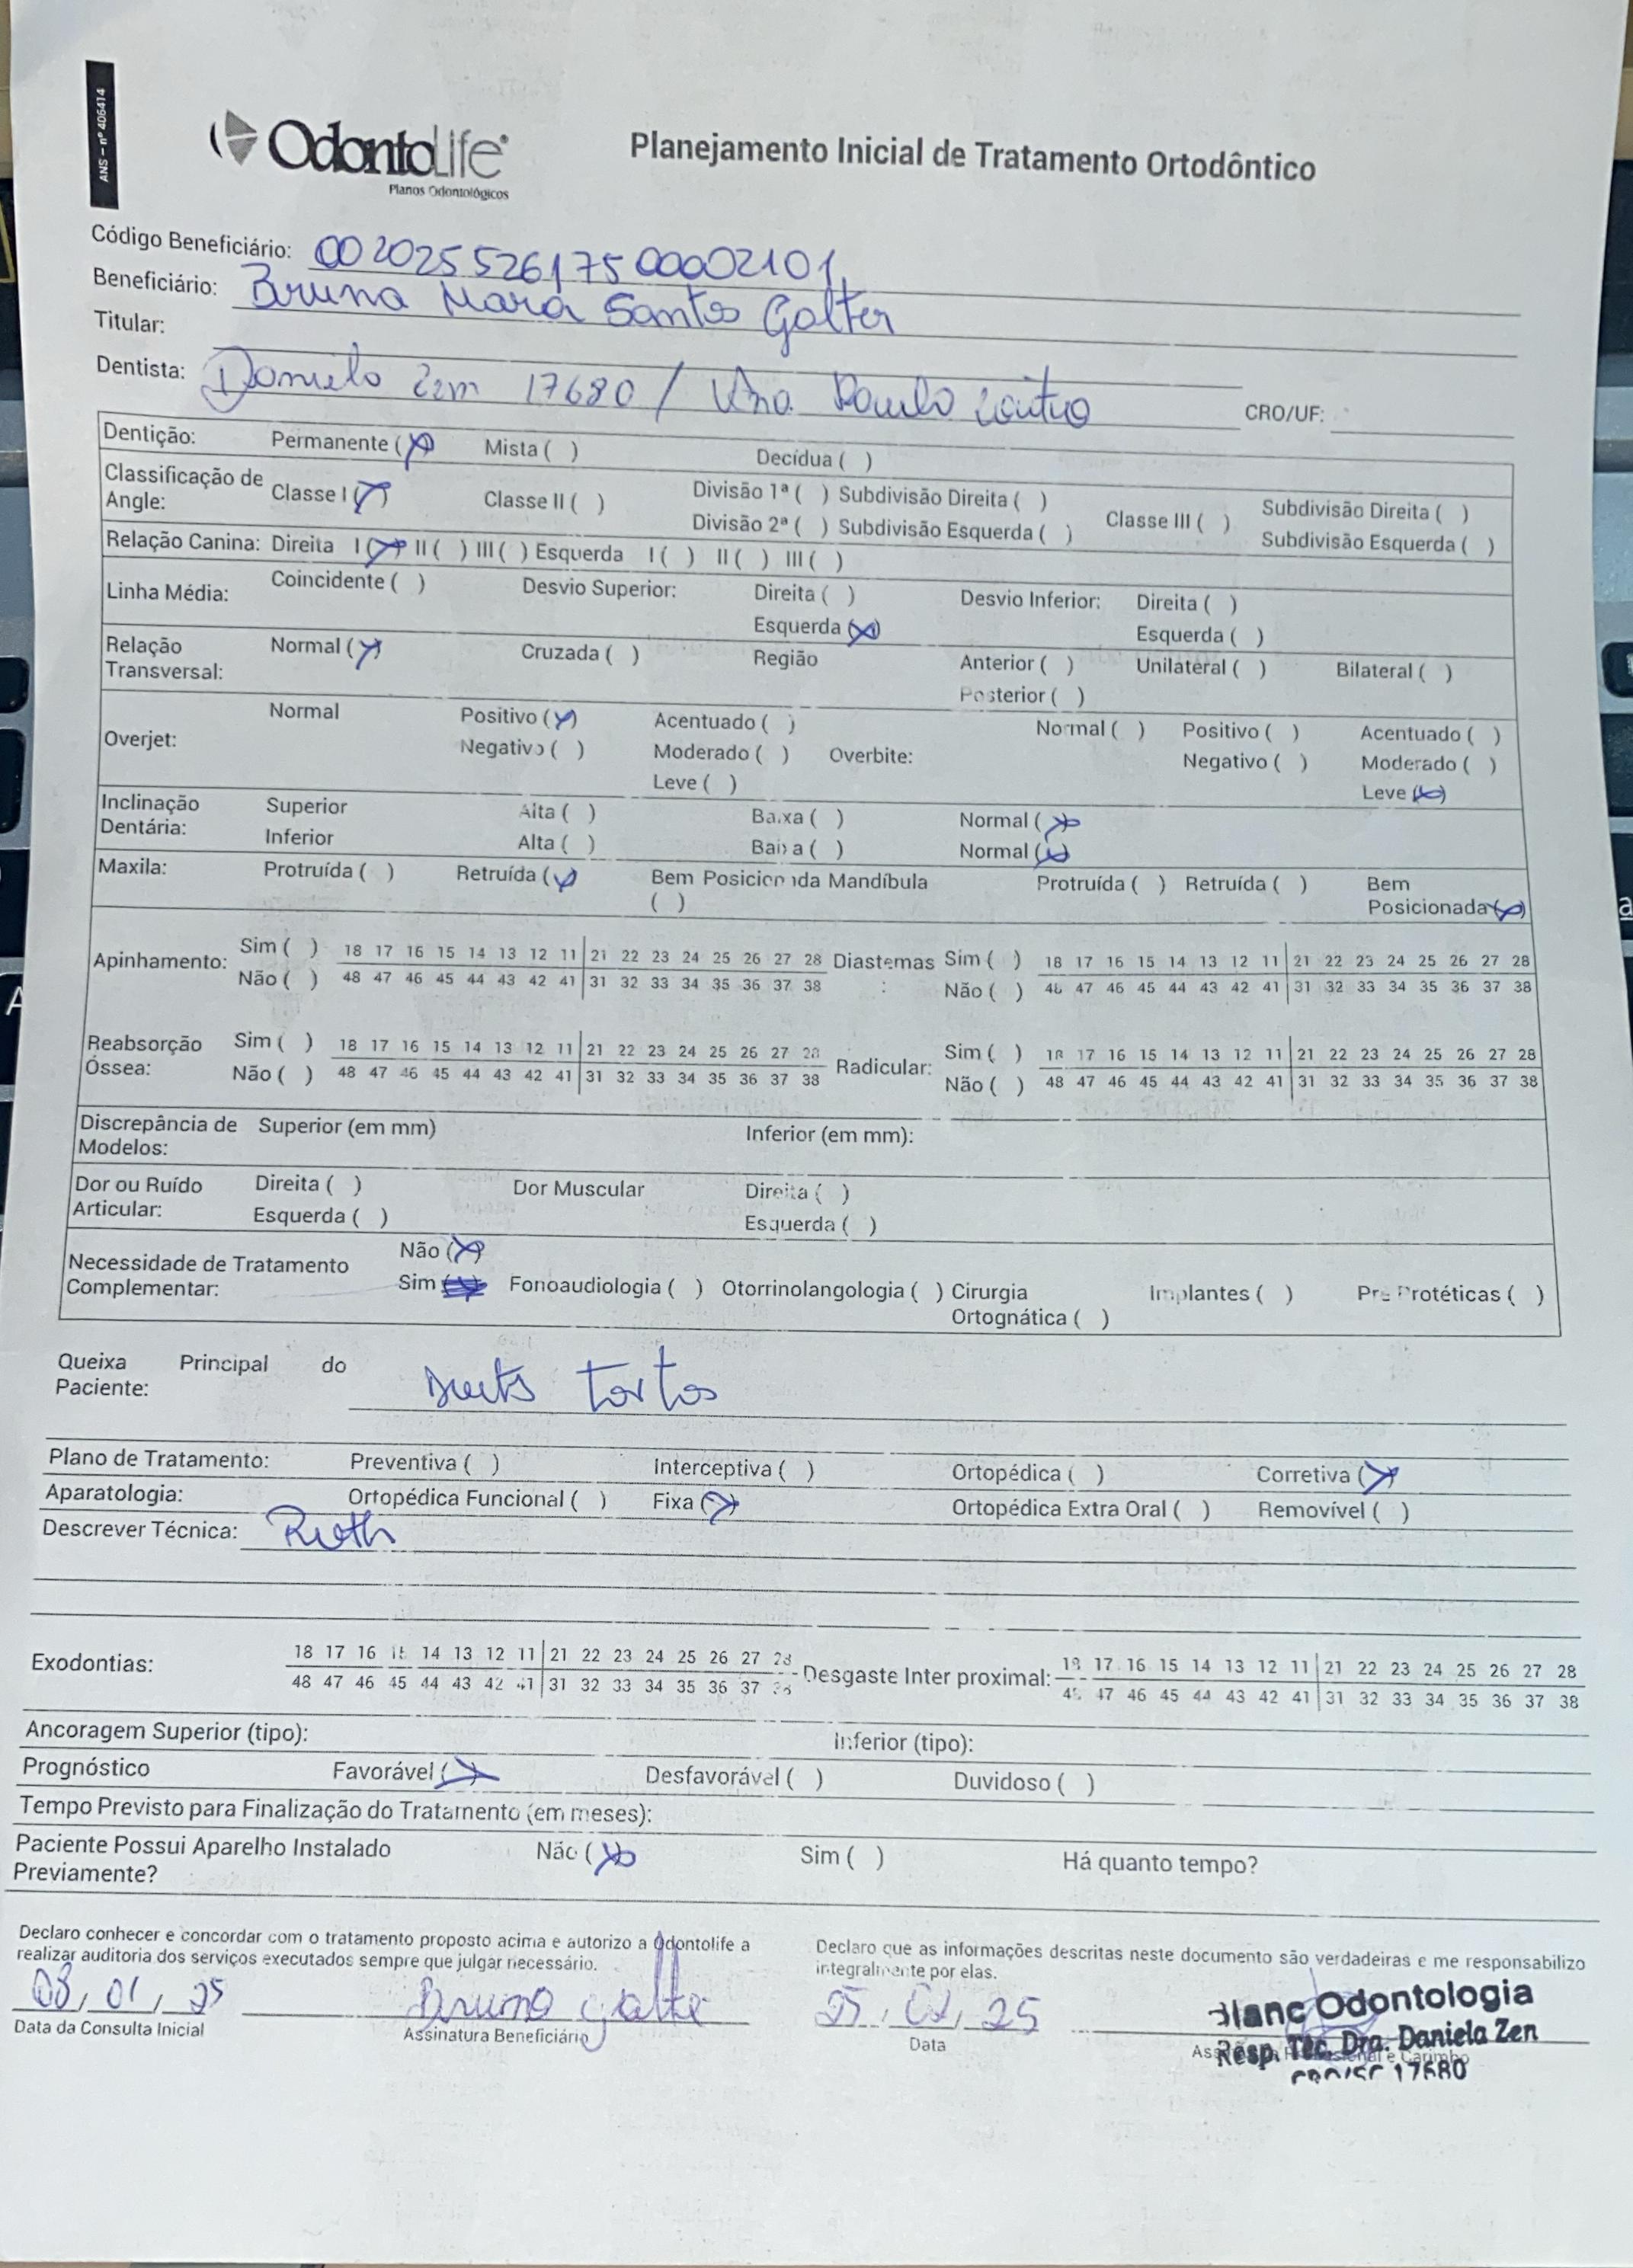 ANS – nº 406414
OdontoLife
Planos Odontológicos
Planejamento Inicial de Tratamento Ortodôntico
Código Beneficiário: 00202552617500002101
Beneficiário: Bruna Mara Santos Galter
Titular:
Dentista: 17680 / CRO/UF:
Dentição: Permanente (X) Mista ( ) Decídua ( )
Classificação de Angle: Classe I (X) Classe II ( ) Divisão 1ª ( ) Subdivisão Direita ( ) Classe III ( ) Subdivisão Direita ( )
Divisão 2ª ( ) Subdivisão Esquerda ( ) Subdivisão Esquerda ( )
Relação Canina: Direita I (X) II ( ) III ( ) Esquerda I ( ) II ( ) III ( )
Linha Média: Coincidente ( ) Desvio Superior: Direita ( ) Desvio Inferior: Direita ( )
Esquerda (X) Esquerda ( )
Relação Transversal: Normal (X) Cruzada ( ) Região Anterior ( ) Unilateral ( ) Bilateral ( )
Posterior ( )
Overjet: Normal Positivo (X) Acentuado ( ) Overbite: Normal ( ) Positivo ( ) Acentuado ( )
Negativo ( ) Moderado ( ) Negativo ( ) Moderado ( )
Leve ( ) Leve (X)
Inclinação Dentária: Superior Alta ( ) Baixa ( ) Normal (X)
Inferior Alta ( ) Baixa ( ) Normal (X)
Maxila: Protruída ( ) Retruída (X) Bem Posicionada ( ) Mandíbula Protruída ( ) Retruída ( ) Bem Posicionada (X)
Apinhamento: Sim ( ) 18 17 16 15 14 13 12 11 21 22 23 24 25 26 27 28 Diastemas: Sim ( ) 18 17 16 15 14 13 12 11 21 22 23 24 25 26 27 28
Não ( ) 48 47 46 45 44 43 42 41 31 32 33 34 35 36 37 38 Não ( ) 48 47 46 45 44 43 42 41 31 32 33 34 35 36 37 38
Reabsorção Óssea: Sim ( ) 18 17 16 15 14 13 12 11 21 22 23 24 25 26 27 28 Radicular: Sim ( ) 18 17 16 15 14 13 12 11 21 22 23 24 25 26 27 28
Não ( ) 48 47 46 45 44 43 42 41 31 32 33 34 35 36 37 38 Não ( ) 48 47 46 45 44 43 42 41 31 32 33 34 35 36 37 38
Discrepância de Modelos: Superior (em mm) Inferior (em mm):
Dor ou Ruído Articular: Direita ( ) Dor Muscular Direita ( )
Esquerda ( ) Esquerda ( )
Necessidade de Tratamento Complementar: Não (X)
Sim Fonoaudiologia ( ) Otorrinolangologia ( ) Cirurgia Ortognática ( ) Implantes ( ) Pré Protéticas ( )
Queixa Principal do Paciente: tortos
Plano de Tratamento: Preventiva ( ) Interceptiva ( ) Ortopédica ( ) Corretiva (X)
Aparatologia: Ortopédica Funcional ( ) Fixa (X) Ortopédica Extra Oral ( ) Removível ( )
Descrever Técnica: Roth
Exodontias: 18 17 16 15 14 13 12 11 21 22 23 24 25 26 27 28 Desgaste Inter proximal: 18 17 16 15 14 13 12 11 21 22 23 24 25 26 27 28
48 47 46 45 44 43 42 41 31 32 33 34 35 36 37 38 48 47 46 45 44 43 42 41 31 32 33 34 35 36 37 38
Ancoragem Superior (tipo): Inferior (tipo):
Prognóstico Favorável (X) Desfavorável ( ) Duvidoso ( )
Tempo Previsto para Finalização do Tratamento (em meses):
Paciente Possui Aparelho Instalado Previamente? Não (X) Sim ( ) Há quanto tempo?
Declaro conhecer e concordar com o tratamento proposto acima e autorizo a Odontolife a
realizar auditoria dos serviços executados sempre que julgar necessário.
08, 01, 25 Bruna Galter
Data da Consulta Inicial Assinatura Beneficiário
Declaro que as informações descritas neste documento são verdadeiras e me responsabilizo
integralmente por elas.
25
Data
Blanc Odontologia
Resp. Téc. Dra. Daniela Zen
CRO/SC 17680